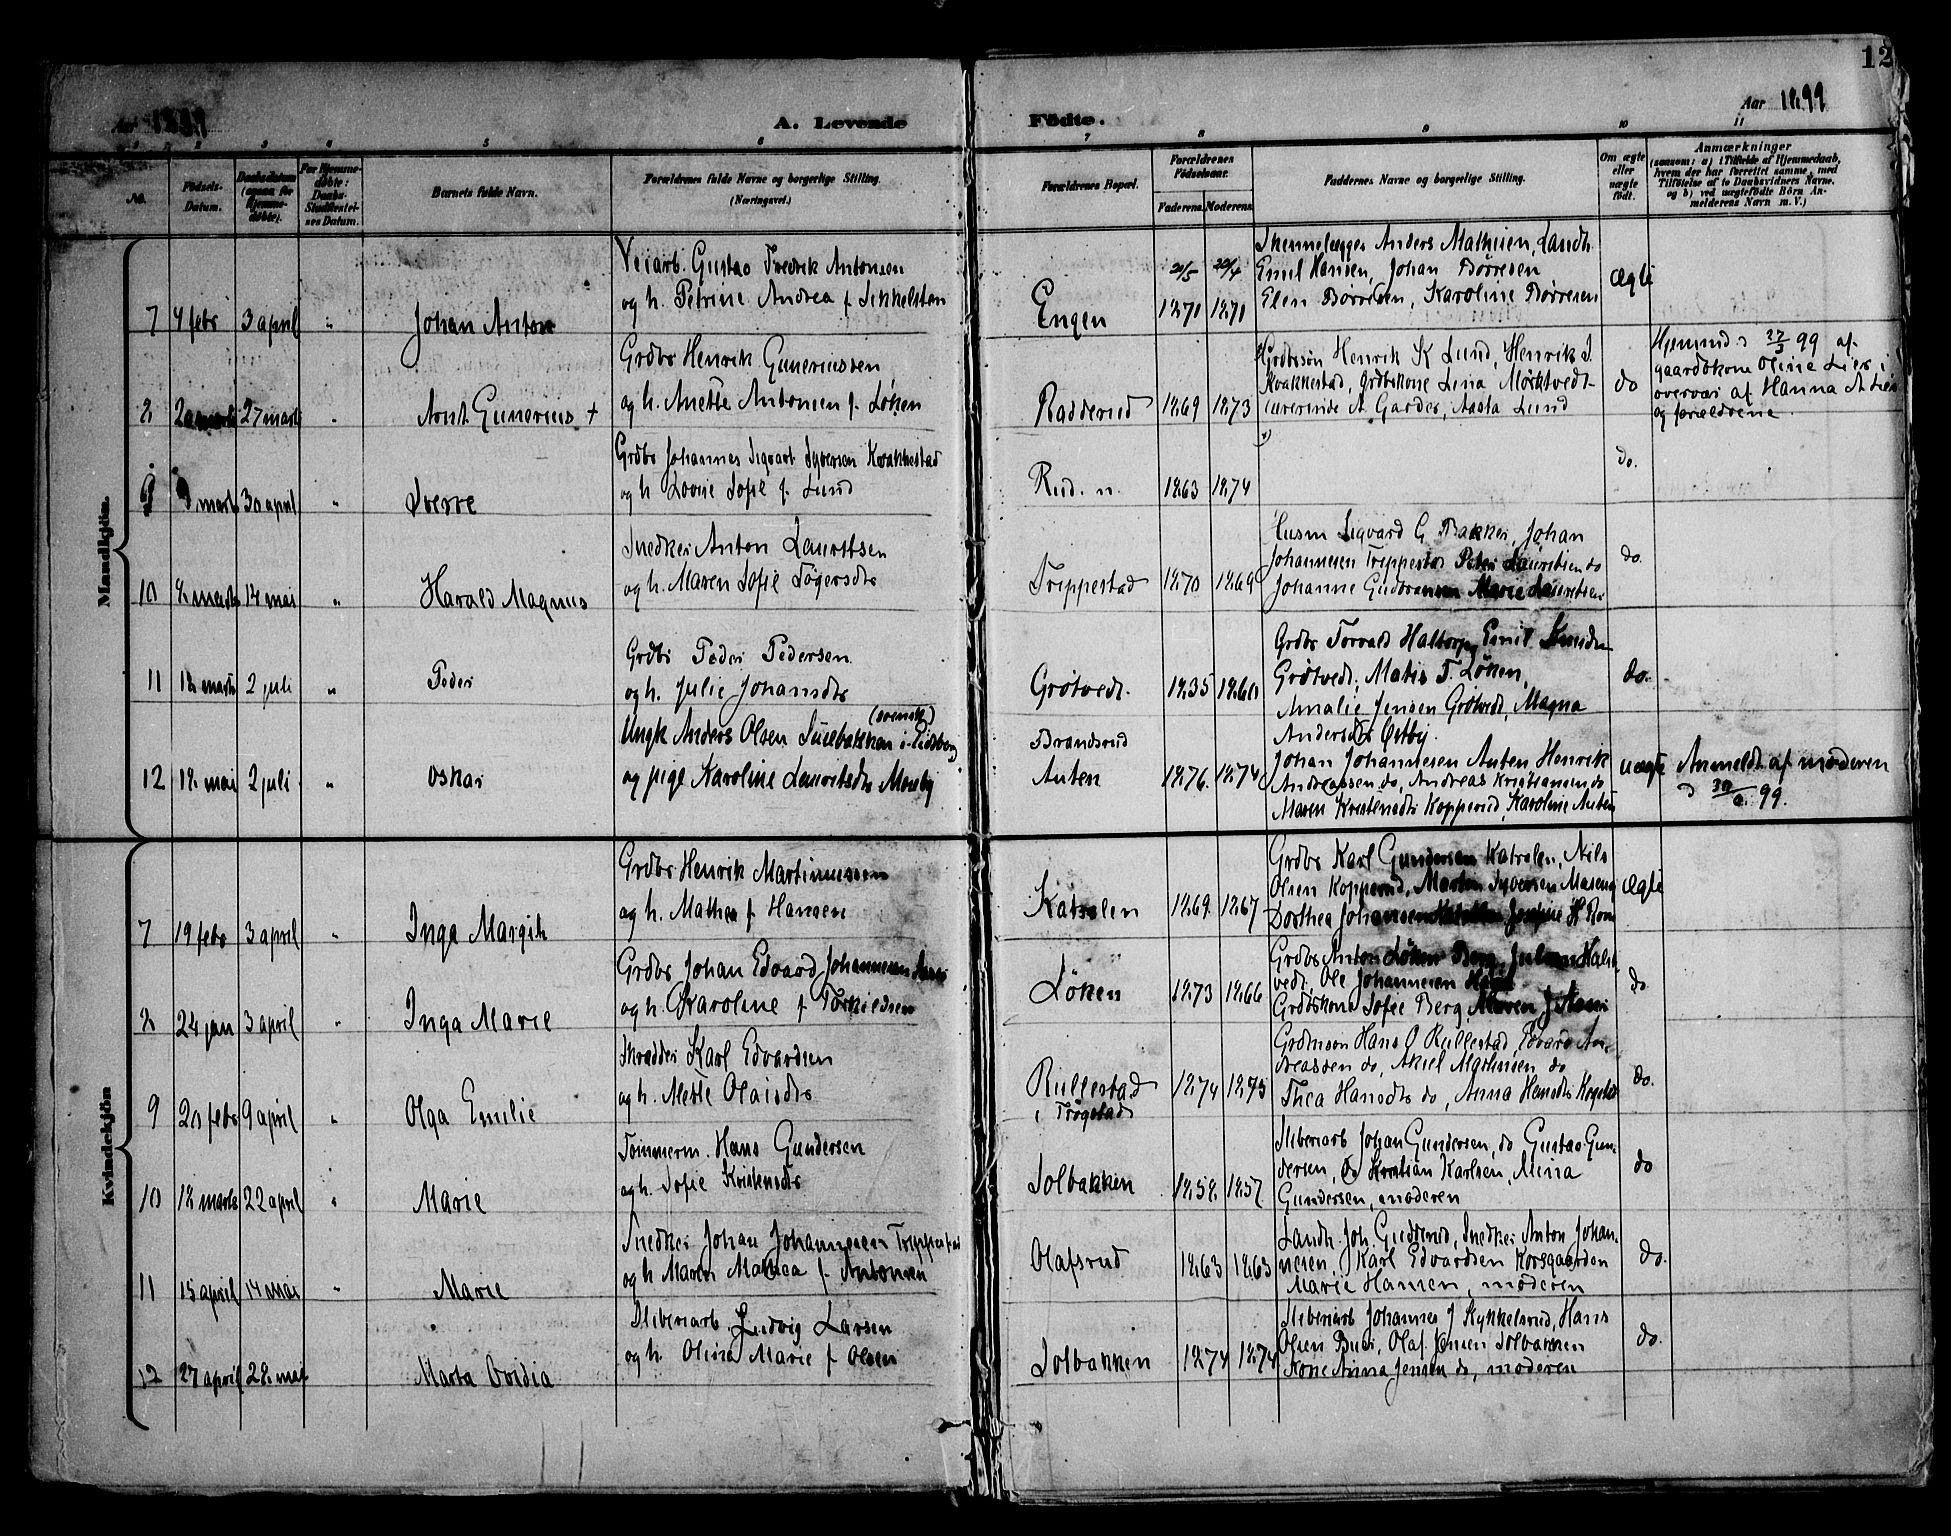 12
Aar 1899
A. Levende
Født­e.
Aar 1899
1 2 3 4 5 6 7 8 9 10 11
No.
Fødsels-
Datum.
Daabsdatum
(ogsaa for
Hjemme-
døbte).
For Hjemme-
døbte:
Daabs-
Stadfæstel-
ses Datum.
Barnets fulde Navn.
Forældrenes fulde Navne og borgerlige Stilling.
(Næringsvei.)
Forældrenes Bopæl.
Forældrenes
Fødselsaar.
Faderens. Moderens.
Faddernes Navne og borgerlige Stilling.
Om ægte
eller
uægte
født.
Anmærkninger
(saasom: a) i Tilfælde af Hjemmedaab,
hvem der har forrettet samme, med
Tilføielse af to Daabsvidners Navne,
og b) ved uægtefødte Børn An-
melderens Navn m. V.)
Mandkjøn.
7 4 febr 3 april " Johan Anton
Veiarb. Gustav Fredrik Antonsen
og h. Petrine Andrea f.
Engen
21/5 22/4
1871 1871
Anders Mathisen, Landh.
Emil Hansen, Johan Børresen
Elen Børresen, Karoline Børresen
ægte
8 27 mars " Arnt Gunerius +
Grdbr Henrik Guneriussen
og h. Anette Antonsen f. Løken
Radderud
1869 1873
Grdbrsøn Henrik K Lund, Henrik S.
Kvakkestad, Grdbrkone Lina Mørktvedt
A Garder, Aasta Lund
do
Hjemmed. 27/3 99 af
gaardbkone Oline Lier i
overvær af Hanna A Lier
og forældrene.
9 mars 30 april " Sverre
Grdbr Johannes Sigvart Syversen Kvakkestad
og h Lovise Sofie f. Lund
Rud. n.
1863 1874
do.
10 8 mars 14 mai " Harald Magnus
Snedker Anton Lauritsen
og h. Maren Sofie
Treppestad
1870 1869
Husm Sigvard G Bakker, Johan
Johannesen Treppestad Peter Lauritsen do
Johanne Gudbransen Marie Lauritsen
do.
11 18 mars 2 juli " Peder
Grdbr Peder Pedersen
og h. Julie Johansdtr
Grøtvedt.
1835 1860
Grdbr Torvald Halborg, Emil
Grøtvedt, Matis T. Løken,
Amalie Jensen Grøtvedt, Magna
Andersdtr Østby.
do.
12 18 mai 2 juli " Oskar
(svensk)
Ungk Anders Olsen i Eidsberg
og pige Karoline Lauritsdtr Moseby
Brandsrud
Auten
1876. 1874
Johan Johannesen Auten Henrik
Andreassen do, Andreas Kristiansen do
Maren Kristensdtr Kopperud, Karoline Auten
uægte
Anmeldt af moderen
d 30/6 99.
Kvindekjøn
7 19 febr 3 april " Inga Margith
Grdbr Henrik Martinussen
og h. Mathea f Hansen
Katralen
1869 1867
Grdbr Karl Gundersen Katralen, Nils
Olsen Kopperud, Marten Syversen Maseng
Dorthea Johansen
ægte
8 24 jan 3 april " Inga Marie
Grdbr Johan Edvard Johannesen
og h. Karoline f Torkildsen
Løken
1873 1866
Grdbr Anton Løken Berg,
Ole Johannesen
Grdbrkone Sofie Berg Maren J
do
9 20 febr 9 april " Olga Emilie
Skrædder Karl Edvardsen
og h. Mette Olaisdtr
Rullestad
i Trøgstad
1874 1875
Hans O Rullestad, Edvard An-
dreassen do, Aksel Mathisen do
Thea Hansdtr do, Anna Hansdtr
do.
10 18 mars 22 april " Marie
Tømmerm. Hans Gundersen
og h. Sofie Kristensdtr
Solbakken
1858. 1857.
Sliberiarb Johan Gundersen, do Gustav Gun-
dersen, do Kristian Karlsen, Mina
Gundersen, moderen
do
11 15 april 14 mai " Marie
Snedker Johan Johannesen
og h Maren Mathea f. Antonsen
Olafsrud
1863 1863
Landh. Joh Gudderud, Snedker Anton Johan-
nesen, Karl Edvardsen Korsgaarden
Marie Hansen, moderen
do.
12 27 april 28. mai Marta Ovidia
Sliberiarb Ludvig Larsen
og h. Olina Marie f Olsen
Solbakken
1874 1874
Sliberiarb Johannes J Kykkelsrud, Hans
Olsen Buer, Olaf Jensen Solbakken
Kone Anna Jensen do, moderen
do.